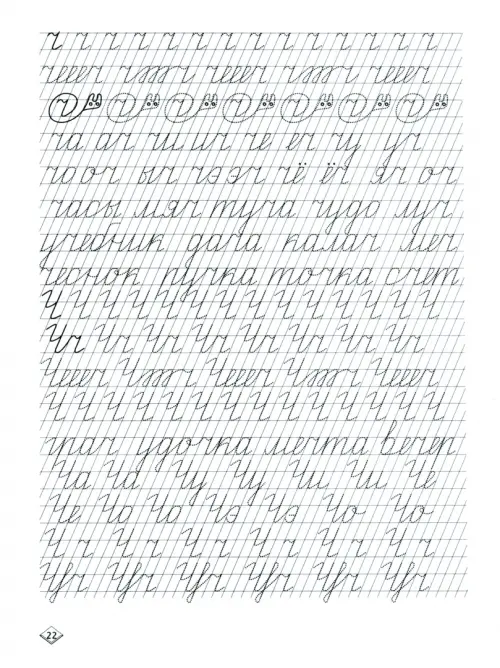 ч ч ч ч ч ч ч ч ч ч ч ч ч ч ч
ч ч ч ч ч ч ч
ча ач чи ич че еч чу уч
чо оч ыч чэ эч чё ёч яч оч
часы мяч туча чудо луч
учебник дача калач меч
чеснок ручка точка счет
Ч Ч Ч Ч Ч Ч Ч Ч Ч Ч Ч Ч Ч Ч
Чч Чч Чч Чч Чч Чч Чч Чч
Ч Ч Ч Ч Ч Ч Ч Ч Ч Ч Ч Ч Ч Ч
грач удочка мечта вечер
Ча Ча Чу Чу Чи Чи Че
Че Чо Чо Чэ Чэ Чо Чо
Ч ч Ч ч Ч ч Ч ч Ч ч Ч ч
Чч Чч Чч Чч Чч Чч
22